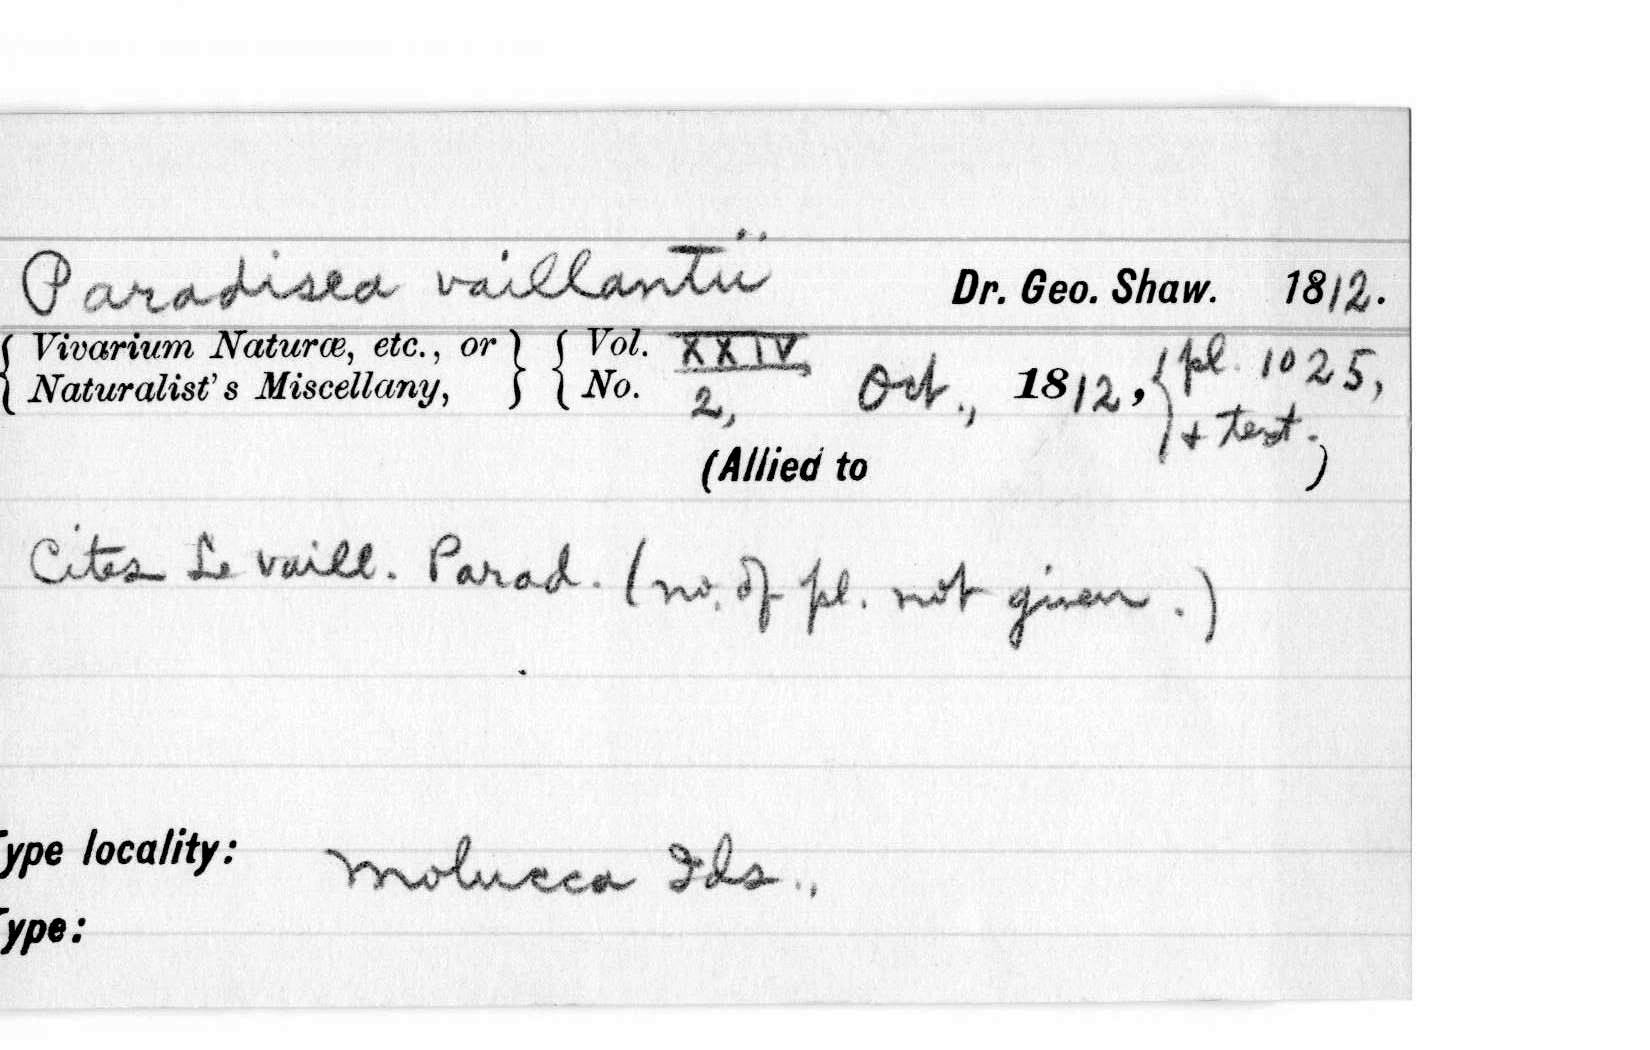 Paradisea vaillantii Dr. Geo. Shaw. 1812.
{ Vivarium Naturæ, etc., or } { Vol. XXIV,
{ Naturalist's Miscellany, } { No. 2, Oct., 1812, { pl. 1025,
+ text.
(Allied to )
Cites Le vaill. Parad. (no. of pl. not given.)
Type locality: Molucca Ids.,
Type: